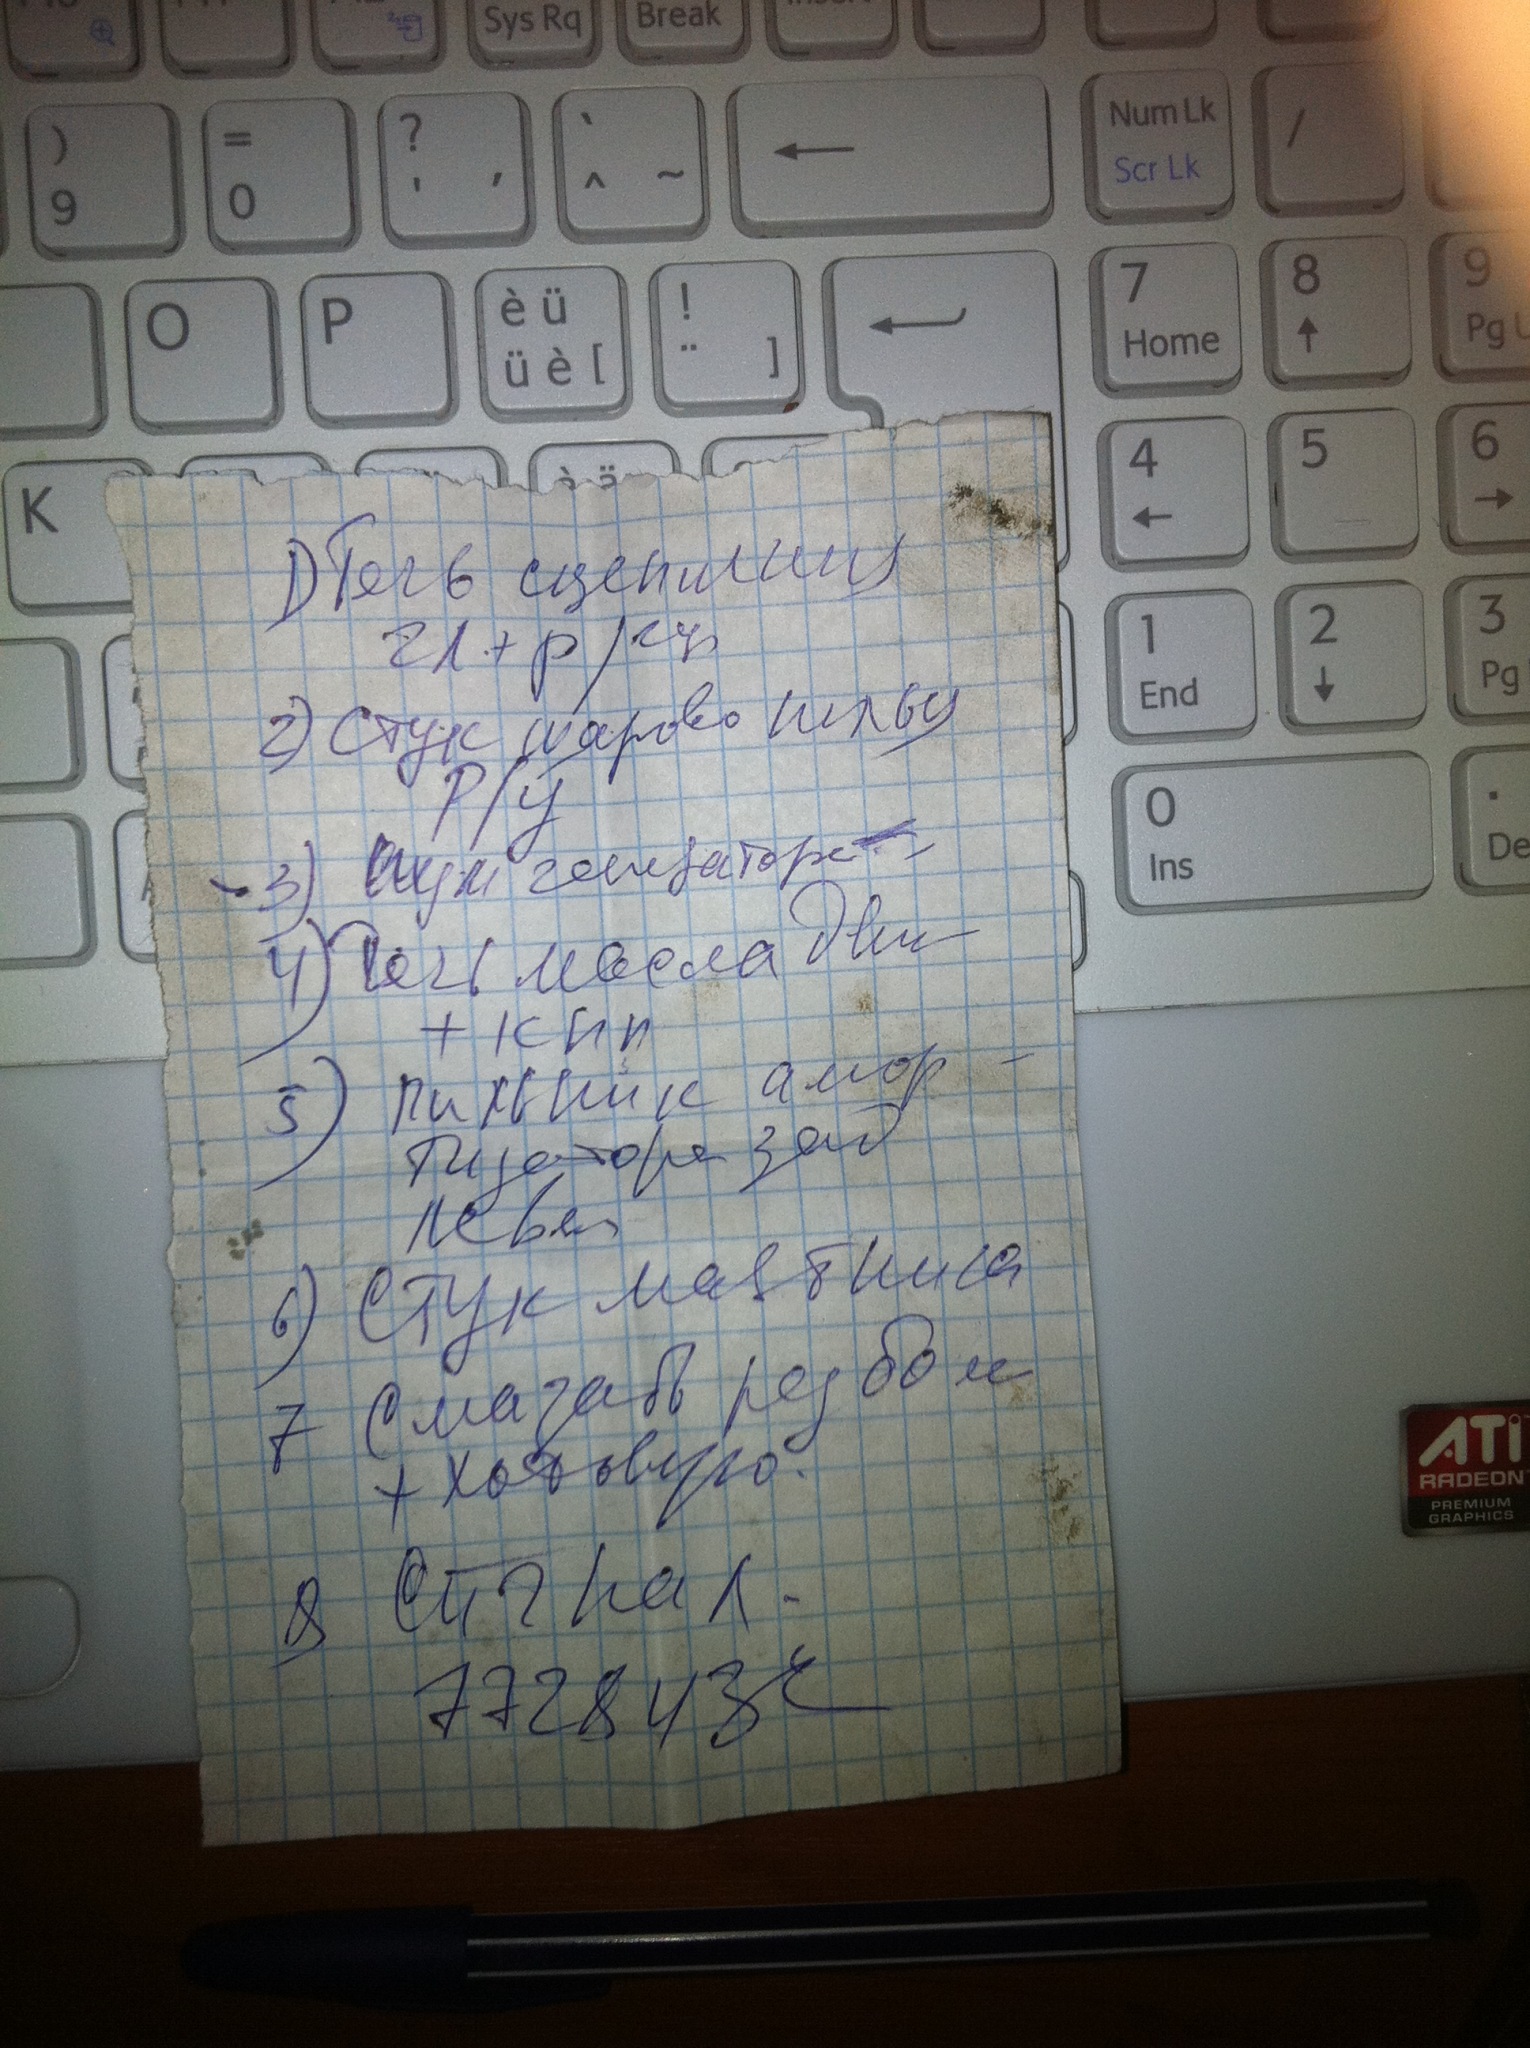 Sys Rq
Break
Insert
)
9
=
0
?
'
´
`
^
~
←
Num Lk
Scr Lk
/
O
P
è ü
ü è [
!
¨
]
7
Home
8
↑
9
Pg U
K
4
←
5
6
→
1
End
2
↓
3
Pg
0
Ins
.
De
1) Течь сцеплении
гл + р/ гц
2) Стук шарово
Р/у
3) Шум генератора
4) Течь масла двиг
+ кпп
5) Пильник амор-
тизатора зад
левы
6) Стук маятника
7 Смазать резбой
+ ходовую.
8 Сигнал.
772843
ATI
RADEON
PREMIUM
GRAPHICS